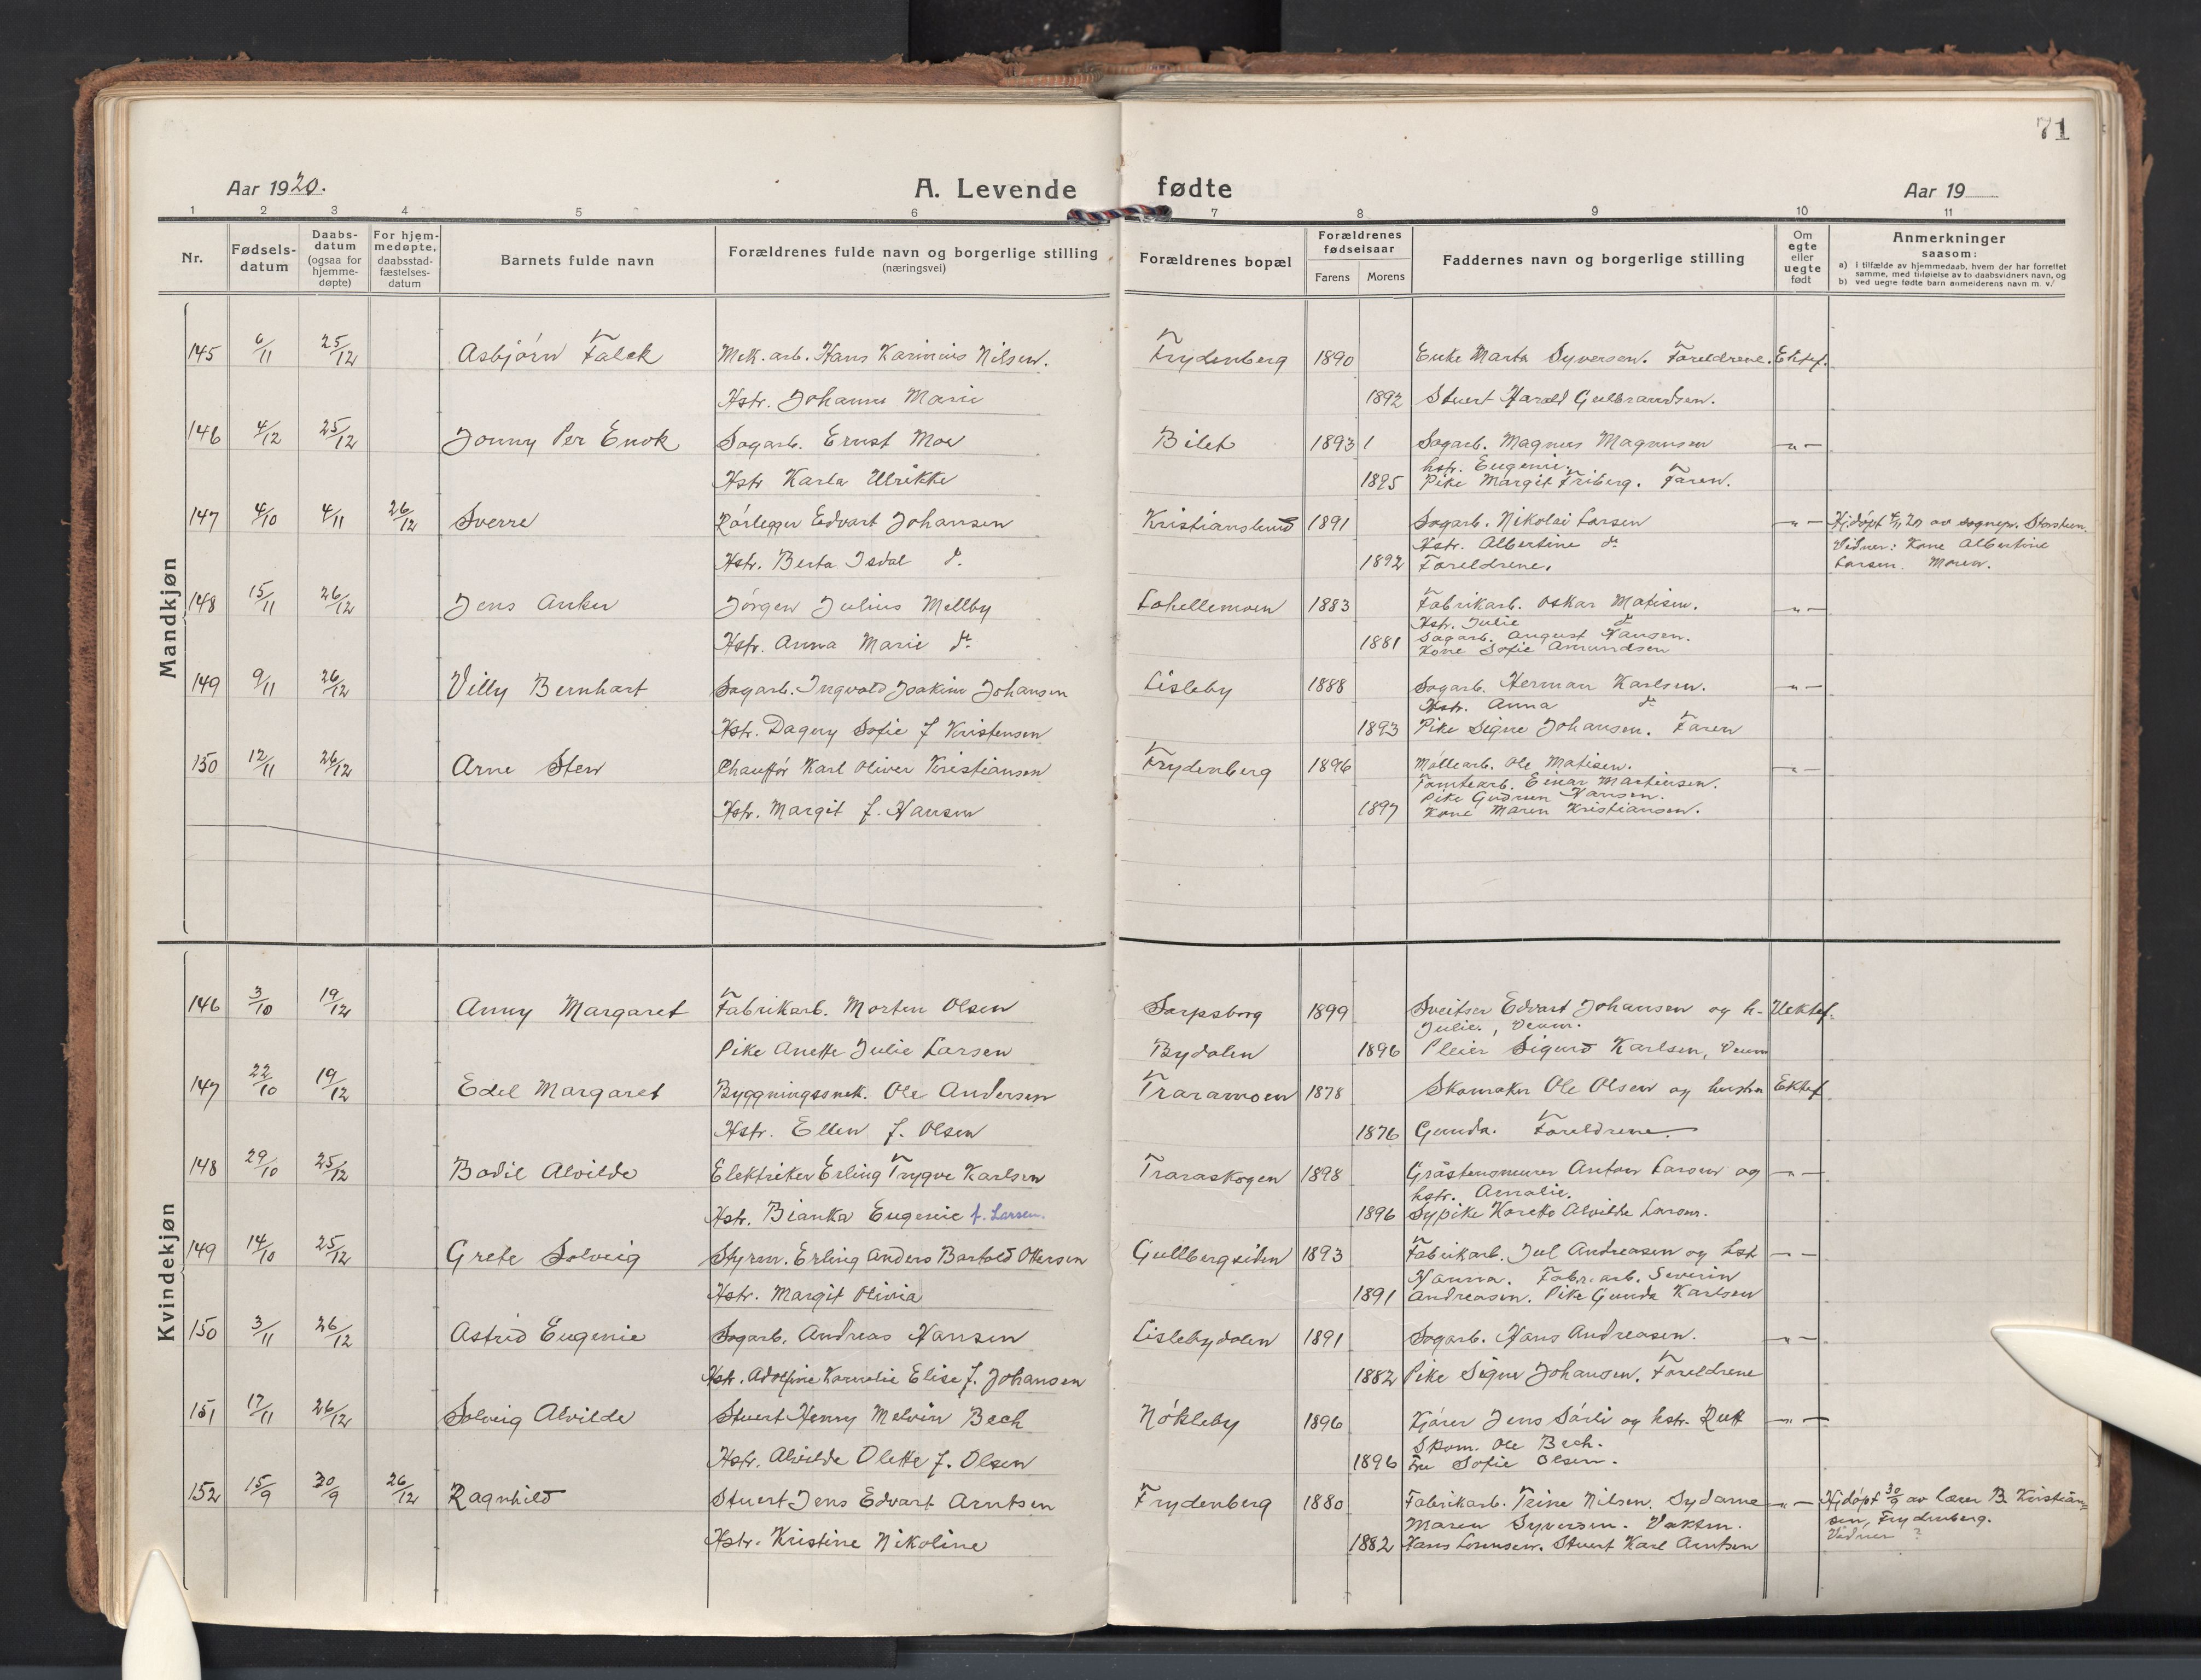 71
Aar 1920.
A. Levende fødte
Aar 19
1 2 3 4 5 6 7 8 9 10 11
Nr.
Fødsels-datum
Daabs-datum (ogsaa for hjemme-døpte)
For hjem-medøpte, daabsstad-fæstelses-datum
Barnets fulde navn
Forældrenes fulde navn og borgerlige stilling (næringsvei)
Forældrenes bopæl
Forældrenes fødselsaar
Farens Morens
Faddernes navn og borgerlige stilling
Om egte eller uegte født
Anmerkninger saasom:
a) i tilfælde av hjemmedaab, hvem der har forrettet samme, med tilføielse av to daabsvidners navn, og
b) ved uegte fødte barn anmelderens navn m. v.
Mandkjøn
145 6/11 25/12 Asbjørn Falck Mek. arb. Hans Karinius Nilsen. Frydenberg 1890 Enke Marta Syversen. Foreldrene. Ektef.
Hstr. Johanne Marie 1892 Stuert Harald Gulbrandsen.
146 4/12 25/12 Jonny Per Enok Sagarb. Ernst Moe Bilet 1893 1 Sagarb. Magnus Magnussen -"-
hstr. Eugenie.
Hstr Karla Ulrikke 1895 Pike Margit Friberg. Faren.
147 4/10 4/11 26/12 Sverre Rørlegger Edvart Johansen Kristianslund 1891 Sagarb. Nikolai Larsen -"- Hjdøpt 4/11 20 av sognepr. Storsteen.
Hstr. Albertine do Vidner: Kone Albertine
Hstr. Berta Isdal d. 1892 Foreldrene. Larsen. Moren.
148 15/11 26/12 Jens Anker Jørgen Julius Mellby Lahellemoen 1883 Fabrikarb. Oskar Matisen. -"-
Hstr. Julie do
Hstr. Anna Marie do 1881 Sagarb. August Hansen.
Kone Sofie Amundsen
149 9/11 26/12 Villy Bernhart Sagarb. Ingvald Joakim Johansen Lisleby 1888 Sagarb. Herman Karlsen. -"-
Hstr. Anna do
Hstr. Dagny Sofie f Kristensen 1893 Pike Signe Johansen. Faren
150 12/11 26/12 Arne Sten Chauffør Karl Oliver Kristiansen Frydenberg 1896 Møllearb. Ole Matisen. -"-
Tomtearb. Einar Martinsen.
Pike Gudrun Hansen.
Hstr. Margit f. Hansen 1897 Kone Maren Kristiansen.
Kvindekjøn
146 3/10 19/12 Anny Margaret Fabrikarb. Morten Olsen Sarpsborg 1899 Sveitser Edvart Johansen og h- Uektef.
Julie, Veum.
Pike Anette Julie Larsen Bydalen 1896 Pleier Sigurd Karlsen, Veum
147 22/10 19/12 Edel Margaret Byggningssnek. Ole Andersen Traramoen 1878 Skomaker Ole Olsen og hustru Ektef
Hstr. Ellen f. Olsen 1876 Gunda. Foreldrene.
148 29/10 25/12 Bodil Alvilde Elektriker Erling Trygve Karlsen Traraskogen 1898 Gråstensmurer Anton Larsen og -"-
hstr. Amalie.
Hstr. Bianka Eugenie f. Larsen. 1896 Sypike Harette Alvilde Larsen.
149 14/10 25/12 Grete Solveig Styrm. Erling Anders Bartold Ottersen Gullbergsiden 1893 Fabrikarb. Jul Andreasen og hst -"-
Hanna. Fabr. arb. Severin
Hstr. Margit Olivia 1891 Andreasen. Pike Gunda Karlsen
150 3/11 26/12 Astrid Eugenie Sagarb. Andreas Hansen Lislebydalen 1891 Sagarb. Hans Andreasen. -"-
Hstr. Adolfine Kornelie Elise f. Johansen 1882 Pike Signe Johansen. Foreldrene
151 17/11 26/12 Solveig Alvilde Stuert Henry Melvin Bech Nøkleby 1896 Kjører Jens Sørli og hstr. Rutt -"-
Skom. Ole Bech.
Hstr. Alvilde Olette f. Olsen 1896 Fru Sofie Olsen.
152 15/9 30/9 26/12 Ragnhild Stuert Jens Edvart Arntsen Frydenberg 1880 Fabrikarb. Trine Nilsen. Sydame -"- Hjdøpt 30/9 av lærer B. Kristian=
Maren Syversen. Vaktm. sen, Frydenberg.
Hstr. Kristine Nikoline 1882 Hans Lorensen. Stuert Karl Arntsen Vidner ?